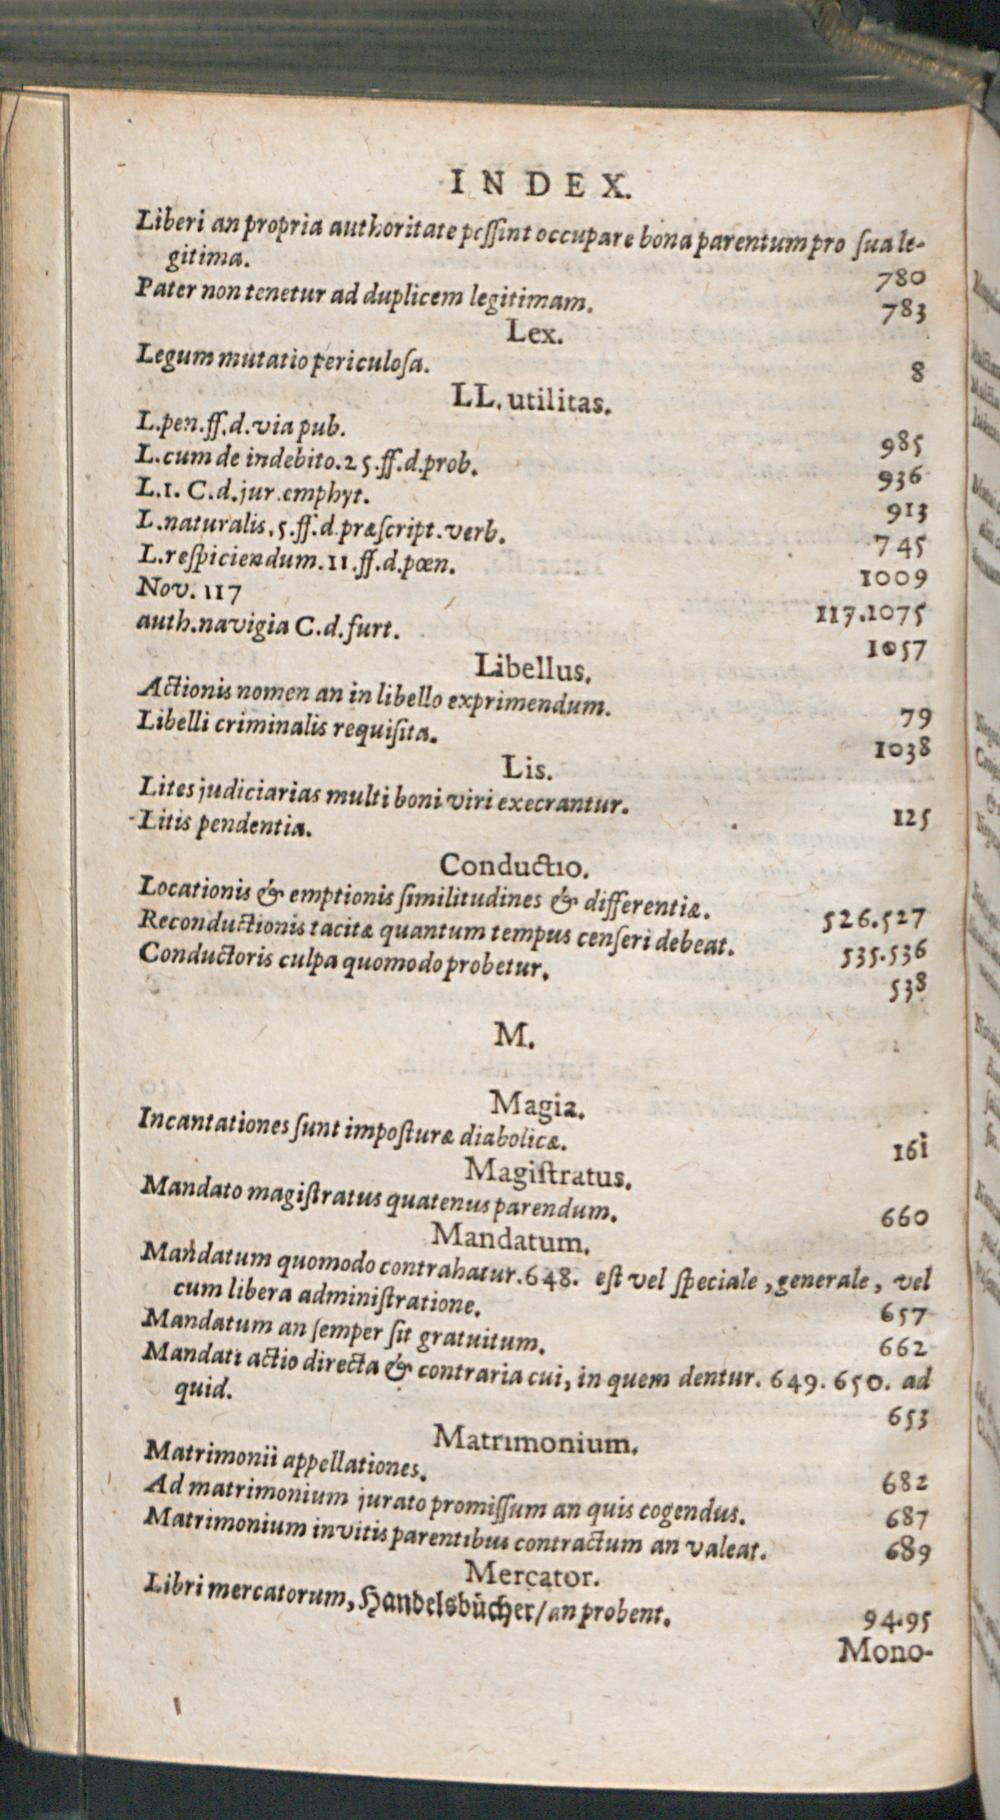 INDEX.
Liberi an propria authoritate possint occupare bona parentum pro sua le-
gitima. 780
Pater non tenetur ad duplicem legitimam. 783
Lex.
Legum mutatio periculosa. 8
LL. utilitas.
L.pen.ff.d.via pub. 985
L.cum de indebito.25.ff.d.prob. 936
L.1. C.d.jur.emphyt. 913
L.naturalis.5.ff.d.præscript.verb. 745
L.respiciendum.11.ff.d.pœn. 1009
Nov. 117 117.1075
auth.navigia C.d.furt. 1057
Libellus.
Actionis nomen an in libello exprimendum. 79
Libelli criminalis requisita. 1038
Lis.
Lites judiciarias multi boni viri execrantur. 125
Litis pendentia.
Conductio.
Locationis & emptionis similitudines & differentiæ. 526.527
Reconductionis tacitæ quantum tempus censeri debeat. 535.536
Conductoris culpa quomodo probetur. 538
M.
Magia.
Incantationes sunt imposturæ diabolicæ. 161
Magistratus.
Mandato magistratus quatenus parendum. 660
Mandatum.
Mandatum quomodo contrahatur.648. est vel speciale, generale, vel
cum libera administratione. 657
Mandatum an semper sit gratuitum. 662
Mandati actio directa & contraria cui, in quem dentur. 649. 650. ad
quid. 653
Matrimonium.
Matrimonii appellationes. 682
Ad matrimonium jurato promissum an quis cogendus. 687
Matrimonium invitis parentibus contractum an valeat. 689
Mercator.
Libri mercatorum, Handelsbücher/ an probent. 94.95
Mono-